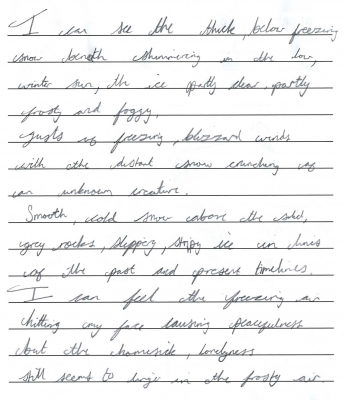 I can see the thick, below freezing
snow beneth shimmering in the low,
winter sun, the ice partly clear, partly
frosty and foggy.
Gusts of freezing, blizzard winds
with the distant snow crunching of
an unknown creature.
Smooth, cold snow above the solid,
grey rocks, slippery, stripy ice in lines
of the past and present timelines.
I can feel the freezing air
hitting my face causing peacefulness
but the homesick, lonelyness
still seems to linge in the frosty air.